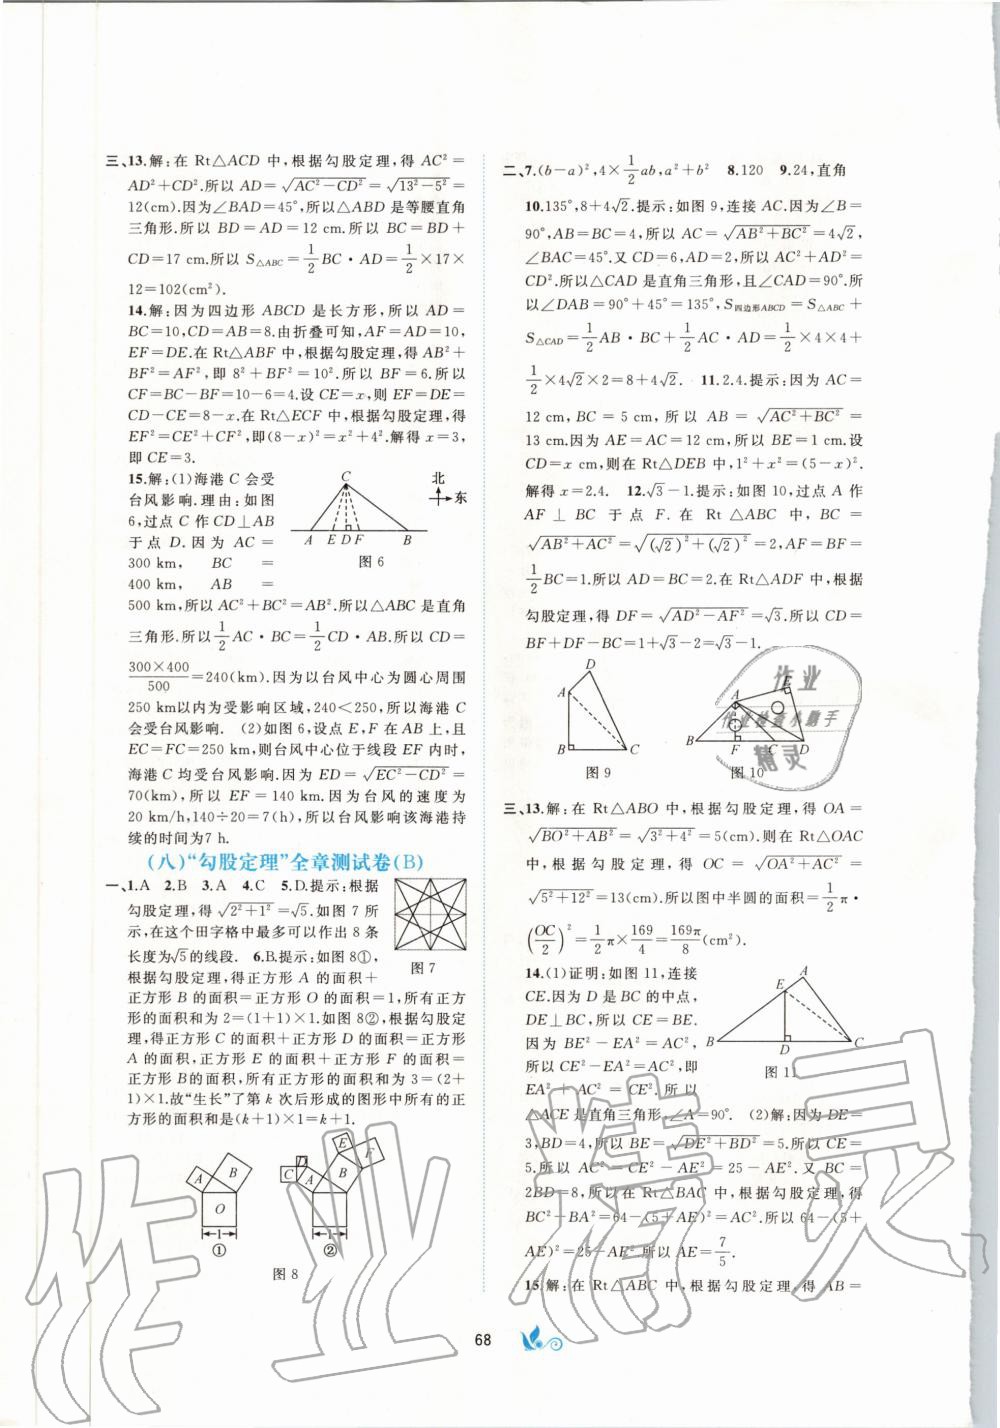 三、13.解:在 Rt△ACD 中,根据勾股定理,得 AC²=
AD²+CD².所以 AD=√(AC²-CD²)=√(13²-5²)=
12(cm).因为∠BAD=45°,所以△ABD 是等腰直角
三角形.所以 BD=AD=12 cm.所以 BC=BD+
CD=17 cm.所以 S△ABC=1/2 BC·AD=1/2×17×
12=102(cm²).
14.解:因为四边形 ABCD 是长方形,所以 AD=
BC=10,CD=AB=8.由折叠可知,AF=AD=10,
EF=DE.在 Rt△ABF 中,根据勾股定理,得 AB²+
BF²=AF²,即 8²+BF²=10².所以 BF=6.所以
CF=BC-BF=10-6=4.设 CE=x,则 EF=DE=
CD-CE=8-x.在 Rt△ECF 中,根据勾股定理,得
EF²=CE²+CF²,即(8-x)²=x²+4².解得 x=3,
即 CE=3.
15.解:(1)海港 C 会受
台风影响.理由:如图
6,过点 C 作 CD⊥AB
于点 D.因为 AC=
300 km, BC=
400 km, AB=
C
北
东
A E D F B
图 6
500 km,所以 AC²+BC²=AB².所以△ABC 是直角
三角形.所以 1/2 AC·BC=1/2 CD·AB.所以 CD=
(300×400)/500=240(km).因为以台风中心为圆心周围
250 km以内为受影响区域,240<250,所以海港 C
会受台风影响. (2)如图 6,设点 E,F 在 AB 上,且
EC=FC=250 km,则台风中心位于线段 EF 内时,
海港 C 均受台风影响.因为 ED=√(EC²-CD²)=
70(km),所以 EF=140 km.因为台风的速度为
20 km/h,140÷20=7(h),所以台风影响该海港持
续的时间为7 h.
(八)“勾股定理”全章测试卷(B)
一、1.A 2.B 3.A 4.C 5.D.提示:根据
勾股定理,得 √(2²+1²)=√5.如图 7 所
示,在这个田字格中最多可以作出 8 条
长度为√5的线段. 6.B.提示:如图 8①,
图 7
根据勾股定理,得正方形 A 的面积+
正方形 B 的面积=正方形 O 的面积=1,所有正方
形的面积和为 2=(1+1)×1.如图 8②,根据勾股定
理,得正方形 C 的面积+正方形 D 的面积=正方形
A 的面积,正方形 E 的面积+正方形 F 的面积=
正方形 B 的面积,所有正方形的面积和为 3=(2+
1)×1.故“生长”了第 k 次后形成的图形中所有的正
方形的面积和是(k+1)×1=k+1.
A B O 1 ①
C D A B E F 1 ②
图 8
二、7.(b-a)²,4×1/2 ab,a²+b² 8.120 9.24,直角
10.135°,8+4√2.提示:如图 9,连接 AC.因为∠B=
90°,AB=BC=4,所以 AC=√(AB²+BC²)=4√2,
∠BAC=45°.又 CD=6,AD=2,所以 AC²+AD²=
CD².所以△CAD 是直角三角形,且∠CAD=90°.所
以∠DAB=90°+45°=135°,S四边形ABCD=S△ABC+
S△CAD=1/2 AB·BC+1/2 AC·AD=1/2×4×4+
1/2×4√2×2=8+4√2. 11.2.4.提示:因为 AC=
12 cm,BC=5 cm,所以 AB=√(AC²+BC²)=
13 cm.因为 AE=AC=12 cm,所以 BE=1 cm.设
CD=x cm,则在 Rt△DEB 中,1²+x²=(5-x)².
解得 x=2.4. 12.√3-1.提示:如图 10,过点 A 作
AF⊥BC 于点 F.在 Rt△ABC 中,BC=
√(AB²+AC²)=√((√2)²+(√2)²)=2,AF=BF=
1/2 BC=1.所以 AD=BC=2.在 Rt△ADF 中,根据
勾股定理,得 DF=√(AD²-AF²)=√3.所以 CD=
BF+DF-BC=1+√3-2=√3-1.
D A B C
图 9
E A B F C D
图 10
作业
作业检查小助手
精灵
三、13.解:在 Rt△ABO 中,根据勾股定理,得 OA=
√(BO²+AB²)=√(3²+4²)=5(cm).则在 Rt△OAC
中,根据勾股定理,得 OC=√(OA²+AC²)=
√(5²+12²)=13(cm).所以图中半圆的面积=1/2 π·
(OC/2)²=1/2 π×169/4=169π/8(cm²).
14.(1)证明:如图 11,连接
CE.因为 D 是 BC 的中点,
DE⊥BC,所以 CE=BE.
因为 BE²-EA²=AC²,
所以 CE²-EA²=AC²,即
A E B D C
图 11
EA²+AC²=CE².所以
△ACE 是直角三角形,∠A=90°. (2)解:因为 DE=
3,BD=4,所以 BE=√(DE²+BD²)=5.所以 CE=
5.所以 AC²=CE²-AE²=25-AE².又 BC=
2BD=8,所以在 Rt△BAC 中,根据勾股定理,得
BC²-BA²=64-(5+AE)²=AC².所以 64-(5+
AE)²=25-AE².所以 AE=7/5.
15.解:在 Rt△ABC 中,根据勾股定理,得 AB=
68
作业精灵